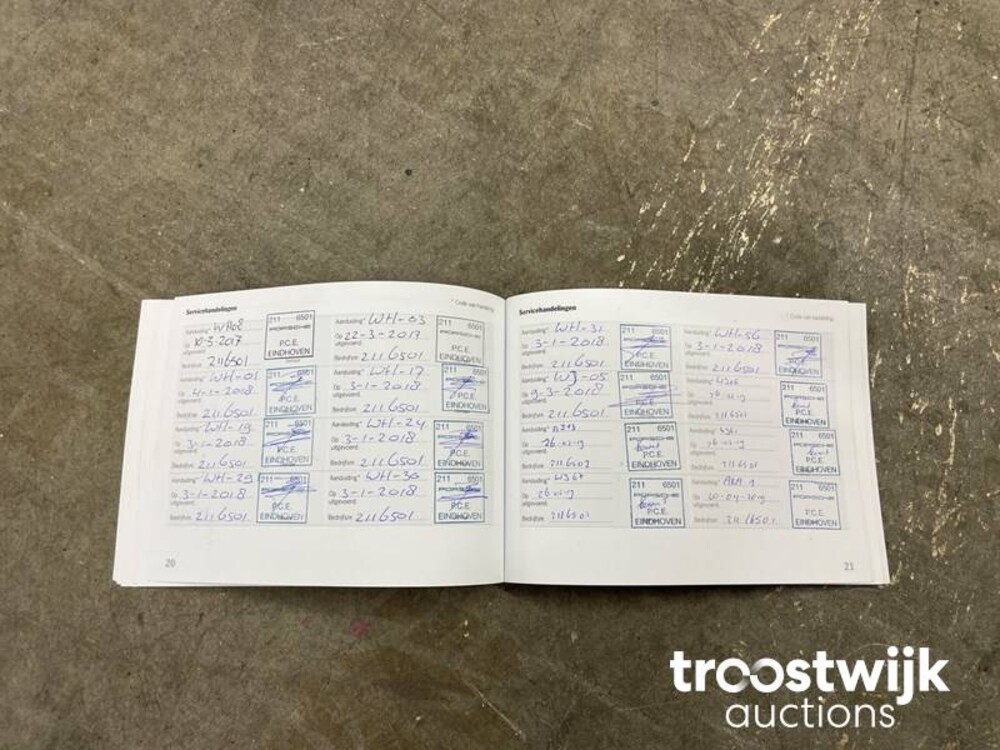 Servicehandelingen
* Code van handeling
Aanduiding* WH62
Op 10-3-2017
uitgevoerd:
Bedrijfsnr. 2116501
211 6501
PORSCHE
P.C.E.
EINDHOVEN
Aanduiding* WH-03
Op 22-3-2017
uitgevoerd:
Bedrijfsnr. 2116501
211 6501
PORSCHE
P.C.E.
EINDHOVEN
Aanduiding* WH-01
Op 4-1-2018
uitgevoerd:
Bedrijfsnr. 2116501
211 6501
P.C.E.
EINDHOVEN
Aanduiding* WH-17
Op 3-1-2018
uitgevoerd:
Bedrijfsnr. 2116501
211 6501
P.C.E.
EINDHOVEN
Aanduiding* WH-19
Op 3-1-2018
uitgevoerd:
Bedrijfsnr. 2116501
211 6501
P.C.E.
EINDHOVEN
Aanduiding* WH-24
Op 3-1-2018
uitgevoerd:
Bedrijfsnr. 2116501
211 6501
P.C.E.
EINDHOVEN
Aanduiding* WH-29
Op 3-1-2018
uitgevoerd:
Bedrijfsnr. 2116501
211 6501
PORSCHE
P.C.E.
EINDHOVEN
Aanduiding* WH-30
Op 3-1-2018
uitgevoerd:
Bedrijfsnr. 2116501
211 6501
PORSCHE
P.C.E.
EINDHOVEN
20
Servicehandelingen
* Code van handeling
Aanduiding* WH-31
Op 3-1-2018
uitgevoerd:
Bedrijfsnr. 2116501
211 6501
P.C.E.
EINDHOVEN
Aanduiding* WH-56
Op 3-1-2018
uitgevoerd:
Bedrijfsnr. 2116501
211 6501
EINDHOVEN
Aanduiding* WJ-05
Op 9-3-2018
uitgevoerd:
Bedrijfsnr. 2116501
211 6501
P.C.E.
EINDHOVEN
Aanduiding*
Op
uitgevoerd:
Bedrijfsnr. 2116501
211 6501
PORSCHE
P.C.E.
EINDHOVEN
Aanduiding*
Op 26-02-19
uitgevoerd:
Bedrijfsnr.
211 6501
PORSCHE
P.C.E.
EINDHOVEN
Aanduiding*
Op 26-02-19
uitgevoerd:
Bedrijfsnr. 2116501
211 6501
PORSCHE
P.C.E.
EINDHOVEN
Aanduiding*
Op 26-02-19
uitgevoerd:
Bedrijfsnr. 2116501
211 6501
PORSCHE
P.C.E.
EINDHOVEN
Aanduiding*
Op 10-04-2019
uitgevoerd:
Bedrijfsnr.
211 6501
PORSCHE
P.C.E.
EINDHOVEN
21
troostwijk
auctions